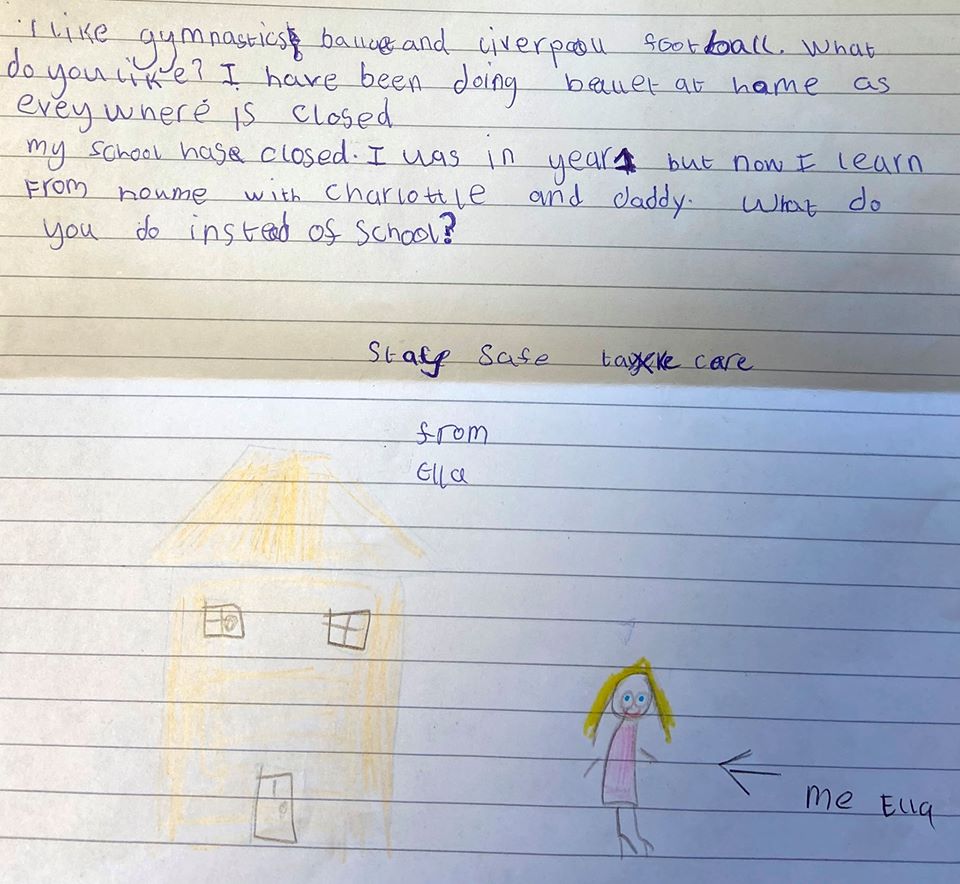 I like gymnastics ballet and liverpool football. What
do you like? I have been doing beuet at home as
eveywhere is closed
my school hase closed. I was in year 1 but now I learn
From houme with charlottle and daddy. What do
you do instead of school?
Stay safe take care
from
Ella
me Ella